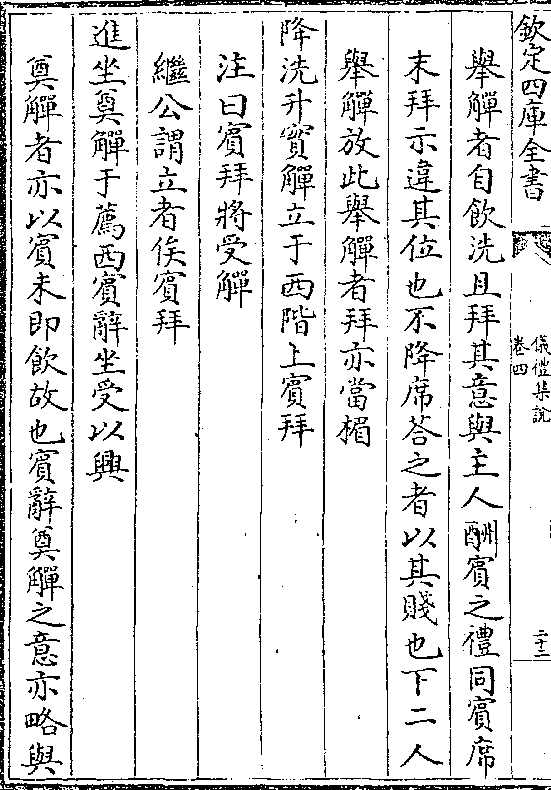 欽定四庫全書
儀禮集說
卷四
二十二
舉觶者自飲洗且拜其意與主人酬賓之禮同賓席
末拜示違其位也不降席荅之者以其賤也下二人
舉觶放此舉觶者拜亦當楣
降洗升實觶立于西階上賓拜
注曰賓拜將受觶
繼公謂立者俟賓拜
進坐奠觶于薦西賓辭坐受以興
奠觶者亦以賓未即飲故也賓辭奠觶之意亦略與